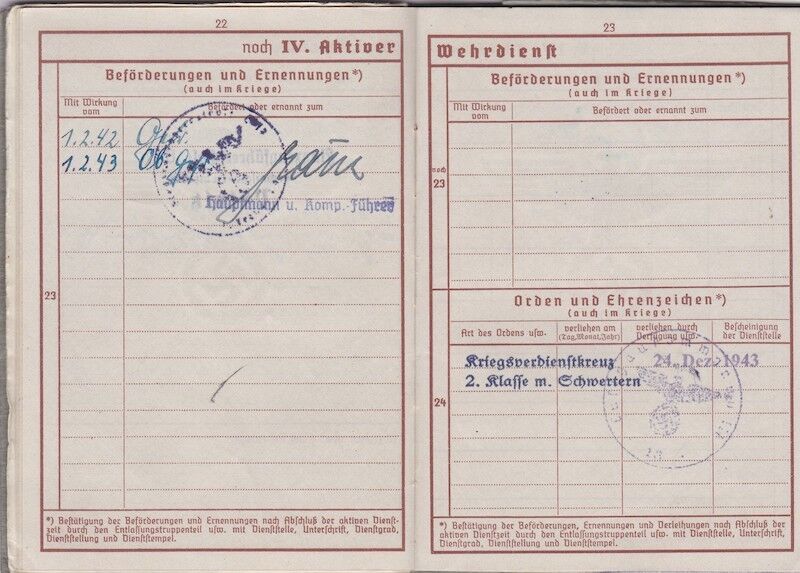 22
noch IV. Aktiver
Beförderungen und Ernennungen*)
(auch im Kriege)
Mit Wirkung vom
Befördert oder ernannt zum
1.2.42 Gefr.
1.2.43 Ob. Gefr.
Hauptmann u. Komp.-Führer
23
*) Bestätigung der Beförderungen und Ernennungen nach Abschluß der aktiven Dienst-
zeit durch den Entlassungstruppenteil usw. mit Dienststelle, Unterschrift, Dienstgrad,
Dienststellung und Dienststempel.
23
Wehrdienst
Beförderungen und Ernennungen*)
(auch im Kriege)
Mit Wirkung vom
Befördert oder ernannt zum
noch
23
Orden und Ehrenzeichen*)
(auch im Kriege)
Art des Ordens usw.
verliehen am
(Tag, Monat, Jahr)
verliehen durch
Verfügung usw.
Bescheinigung
der Dienststelle
Kriegsverdienstkreuz 24. Dez. 1943
2. Klasse m. Schwertern
24
*) Bestätigung der Beförderungen, Ernennungen und Verleihungen nach Abschluß der
aktiven Dienstzeit durch den Entlassungstruppenteil usw. mit Dienststelle, Unterschrift,
Dienstgrad, Dienststellung und Dienststempel.